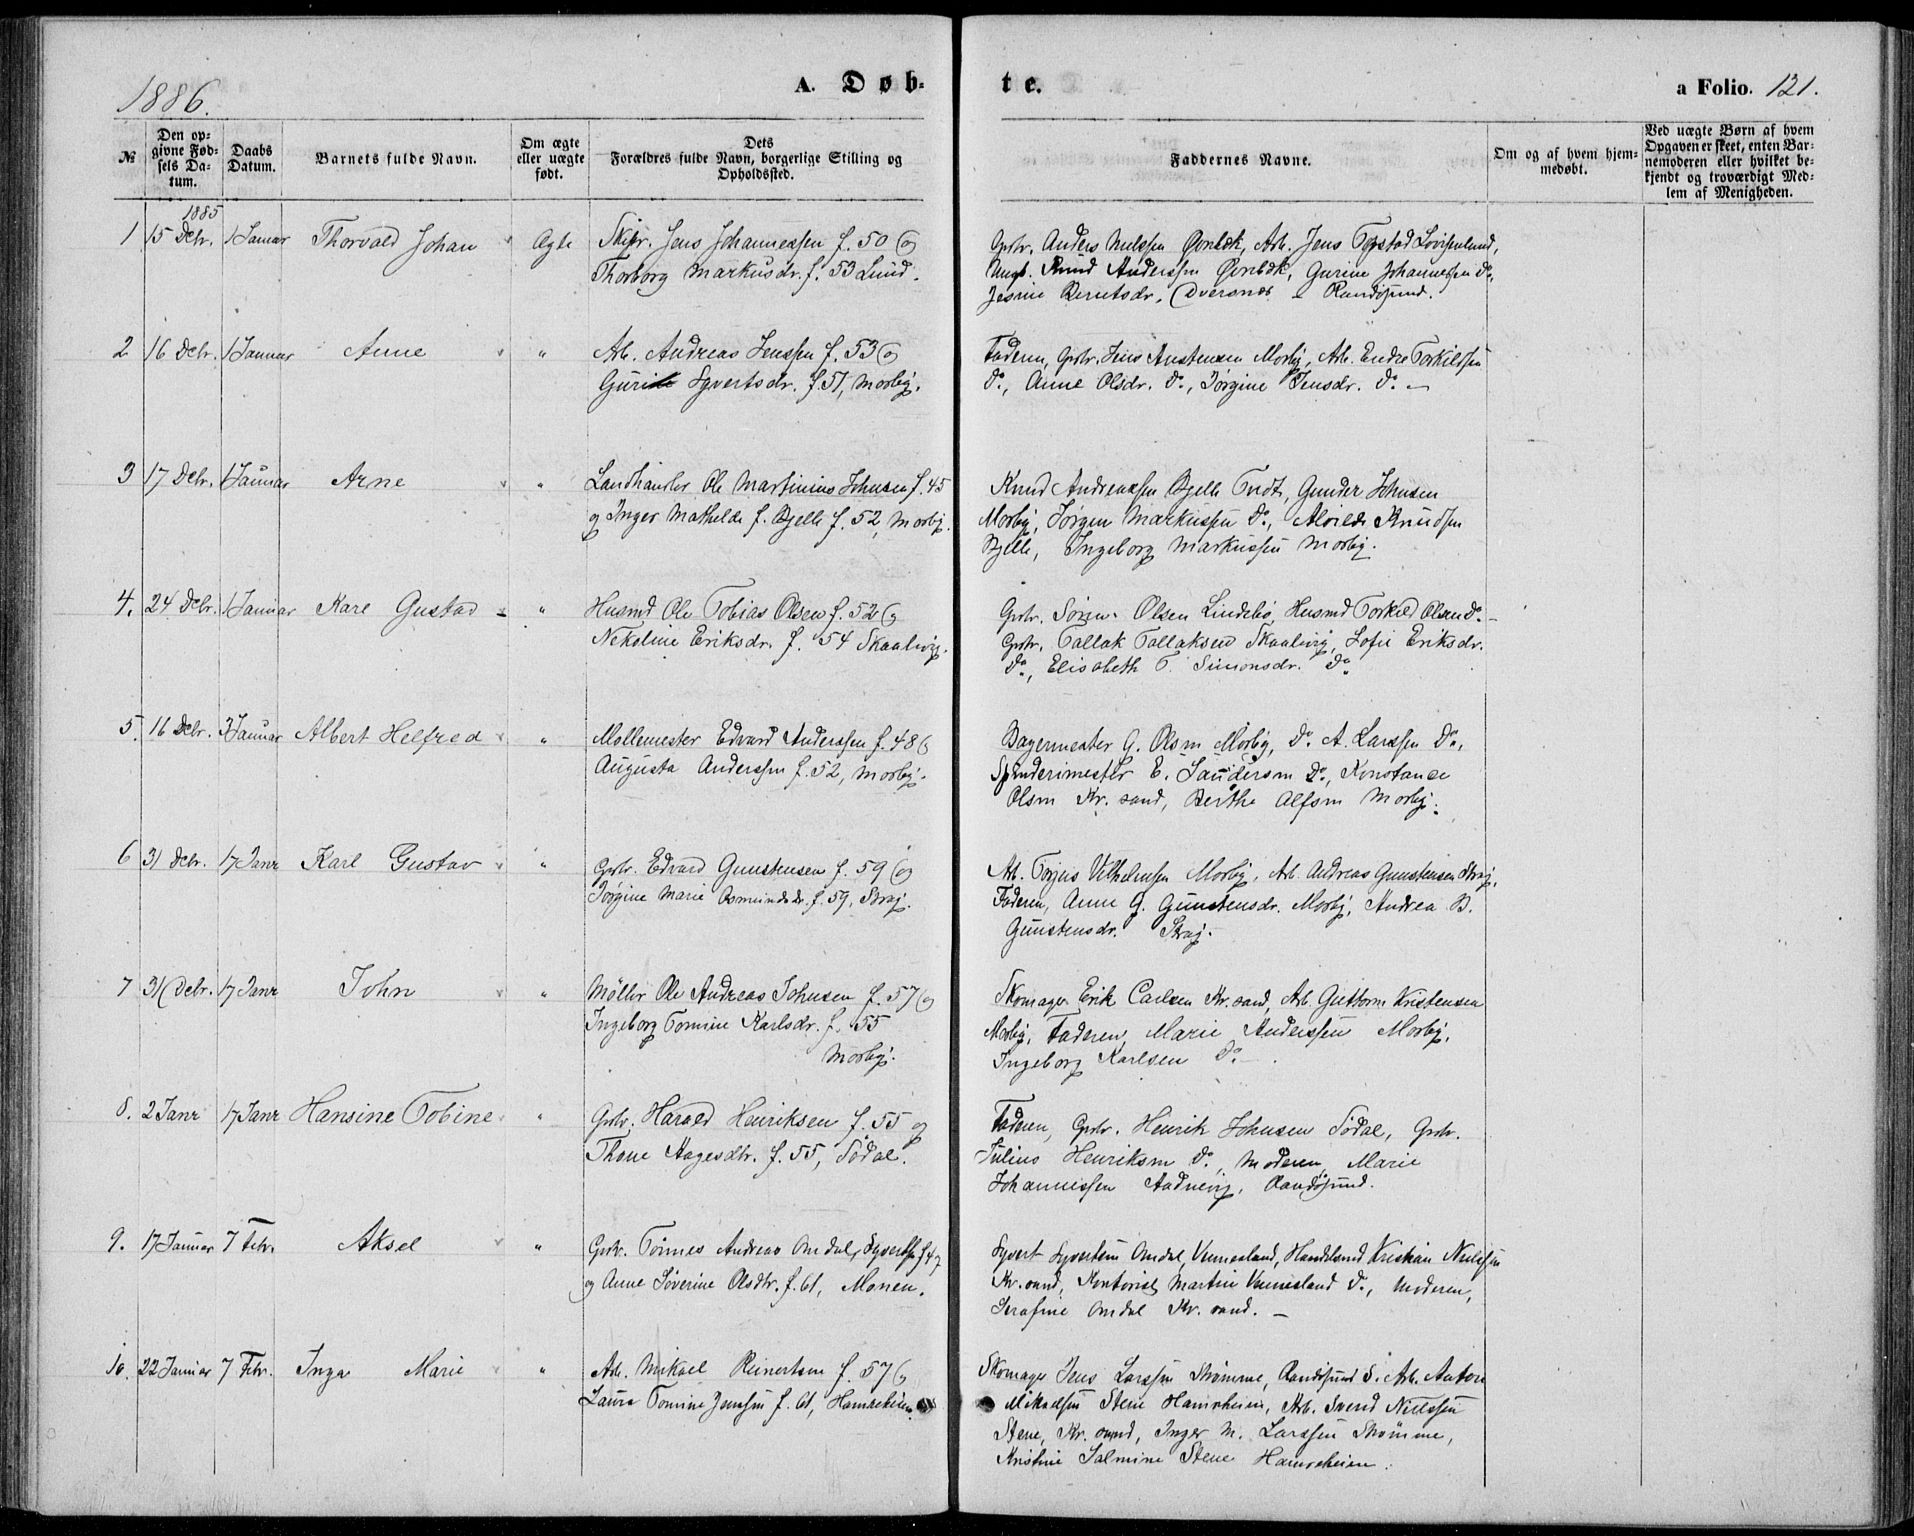 1886.
A. Døb-
te.
a Folio. 121.
№
Den op-
givne Fød-
sels Da-
tum.
Daabs
Datum.
Barnets fulde Navn.
Om ægte
eller uægte
født.
Dets
Forældres fulde Navn, borgerlige Stilling og
Opholdssted.
Faddernes Navne.
Om og af hvem hjem-
medøbt.
Ved uægte Børn af hvem
Opgaven er skeet, enten Bar-
nemoderen eller hvilket be-
kjendt og troværdigt Med-
lem af Menigheden.
1885
1 15 Debr. 1 Januar Thorvald Johan Ægte Skipr. Jens Johannessen f. 50 og
Thorborg Markusdr. f. 53 Lund.
Grbr. Anders Nielssen Øvrebæk, Arb. Jens Lovisenlund,
Ungk. Knud Anderssen Øvrebæk, Gurine Johannessen Do.
Jesine Berntsdr. Dversnæs Randøsund.
2 16 Debr. 1 Januar Anne " Arb. Andreas Jenssen f. 53 og
Guri Syvertsdr. f. 51, Mosby.
Faderen, Grbr. Jens Austensen Mosby, Arb. Endre Torkildsen
Do., Anne Olsdr. Do., Jørgine Jensdr. Do. –
3 17 Debr. 1 Januar Arne " Landhandler Ole Martinius Johnsen f. 45
og Inger Mathilde f. Bjelle f. 52, Mosby.
Knud Andreassen Bjelle Tvedt, Gunder Johnsen
Mosby, Jørgen Markussen Do., Alvilde Knudsen
Bjelle, Ingeborg Markussen Mosby.
4. 24 Debr. 1 Januar Karl Gustad " Husmd Ole Tobias Olsen f. 52 og
Nekoline Eriksdr. f. 54 Skaalevig.
Grbr. Søren Olsen Lindebø, Husmd Torkild Olsen Do. –
Grbr. Tallak Tallaksen Skaalevig, Sofie Eriksdr.
Do., Elisabeth T. Simonsdr. Do
5. 16 Debr. 3 Januar Albert Helfred " Møllemester Edvard Anderssen f. 48 og
Augusta Anderssen f. 52, Mosby.
Bagermester G. Olsen Mosby, Do. A. Larssen Do.,
Spinderimester E. Do., Konstance
Olsen Kr.sand, Berthe Alfsen Mosby.
6 31 Debr. 17 Janr Karl Gustav " Grbr. Edvard Gunstensen f. 59 og
Jørgine Marie Osmundsdr. f. 59, Straj.
Arb. Torjus Vilhelmsen Mosby, Arb. Andreas Gunstensen Straj,
Faderen, Anne G. Gunstensdr. Mosby, Andrea B.
Gunstensdr. Straj.
7 31 Debr. 17 Janr John " Møller Ole Andreas Johnsen f. 57 og
Ingeborg Tomine Karlsdr. f. 55
Mosby.
Skomager Erik Carlsen Kr.sand, Arb. Guttorm Kristensen
Mosby, Faderen, Marie Anderssen Mosby,
Ingeborg Karlsen Do. –
8. 2 Janr 17 Janr Hansine Tobine " Grbr. Harald Henriksen f. 55 og
Thone Aagesdtr. f. 55, Sødal.
Faderen, Grbr. Henrik Johnsen Sødal, Grbr.
Julius Henriksen Do., Moderen, Marie
Johannessen Aadnevig, Randøsund.
9. 17 Januar 7 Febr. Aksel " Grbr. Tønnes Andreas Omdal Syvertsen f. 47
og Anne Severine Olsdtr. f. 61, Monen.
Syvert Syvertsen Omdal, Vennesland, Handelsmd Kristian Nielssen
Kr.sand, Kontorist Martin Vennesland Do., Moderen,
Serafine Omdal Kr.sand. –
10. 22 Januar 7 Febr. Inga Marie " Arb. Mikael Reinertsen f. 57 og
Laura Tomine Jenssen f. 61, Hamreheien
Skomager Jens Larssen Strømme, Randøsund S. Arb. Anton
Mikaelsen Stene Hamreheien, Arb. Svend Nielssen
Stene, Kr.sand, Inger M. Larssen Strømme,
Kristine Salmine Stene Hamreheien.